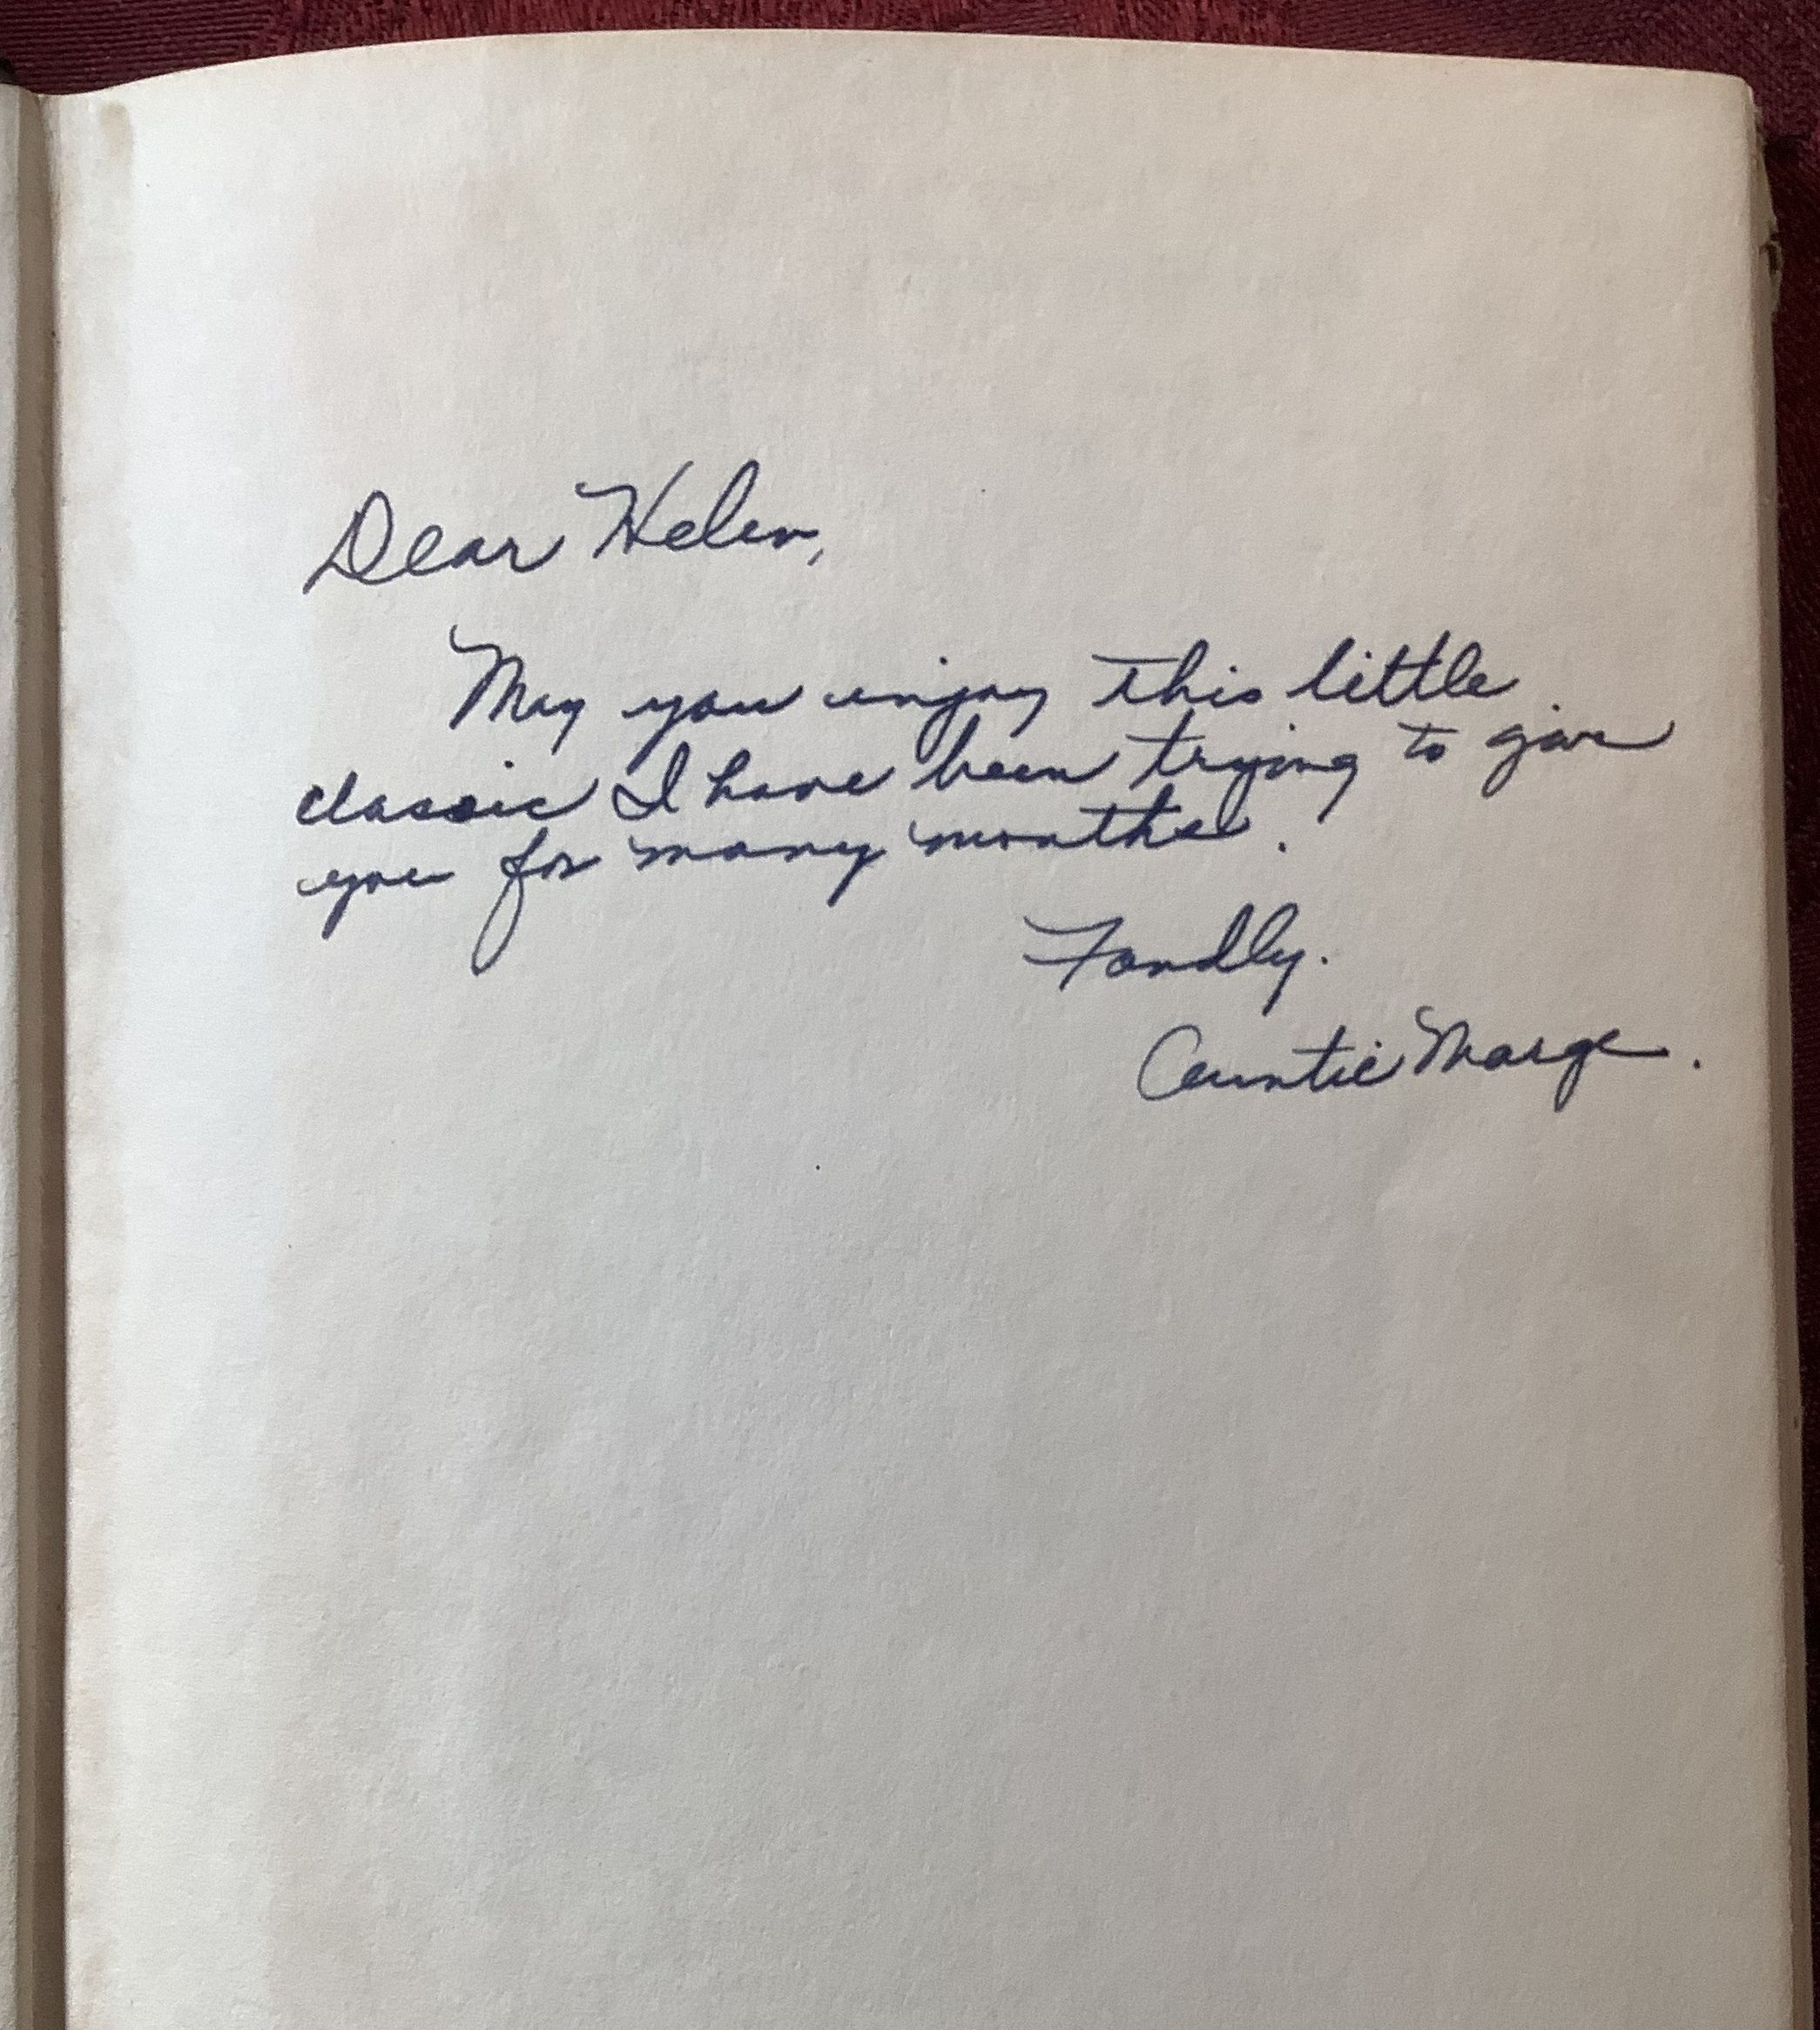 Dear Helen,
May you enjoy this little
classic I have been trying to give
you for many months.
Fondly.
Auntie Marge.